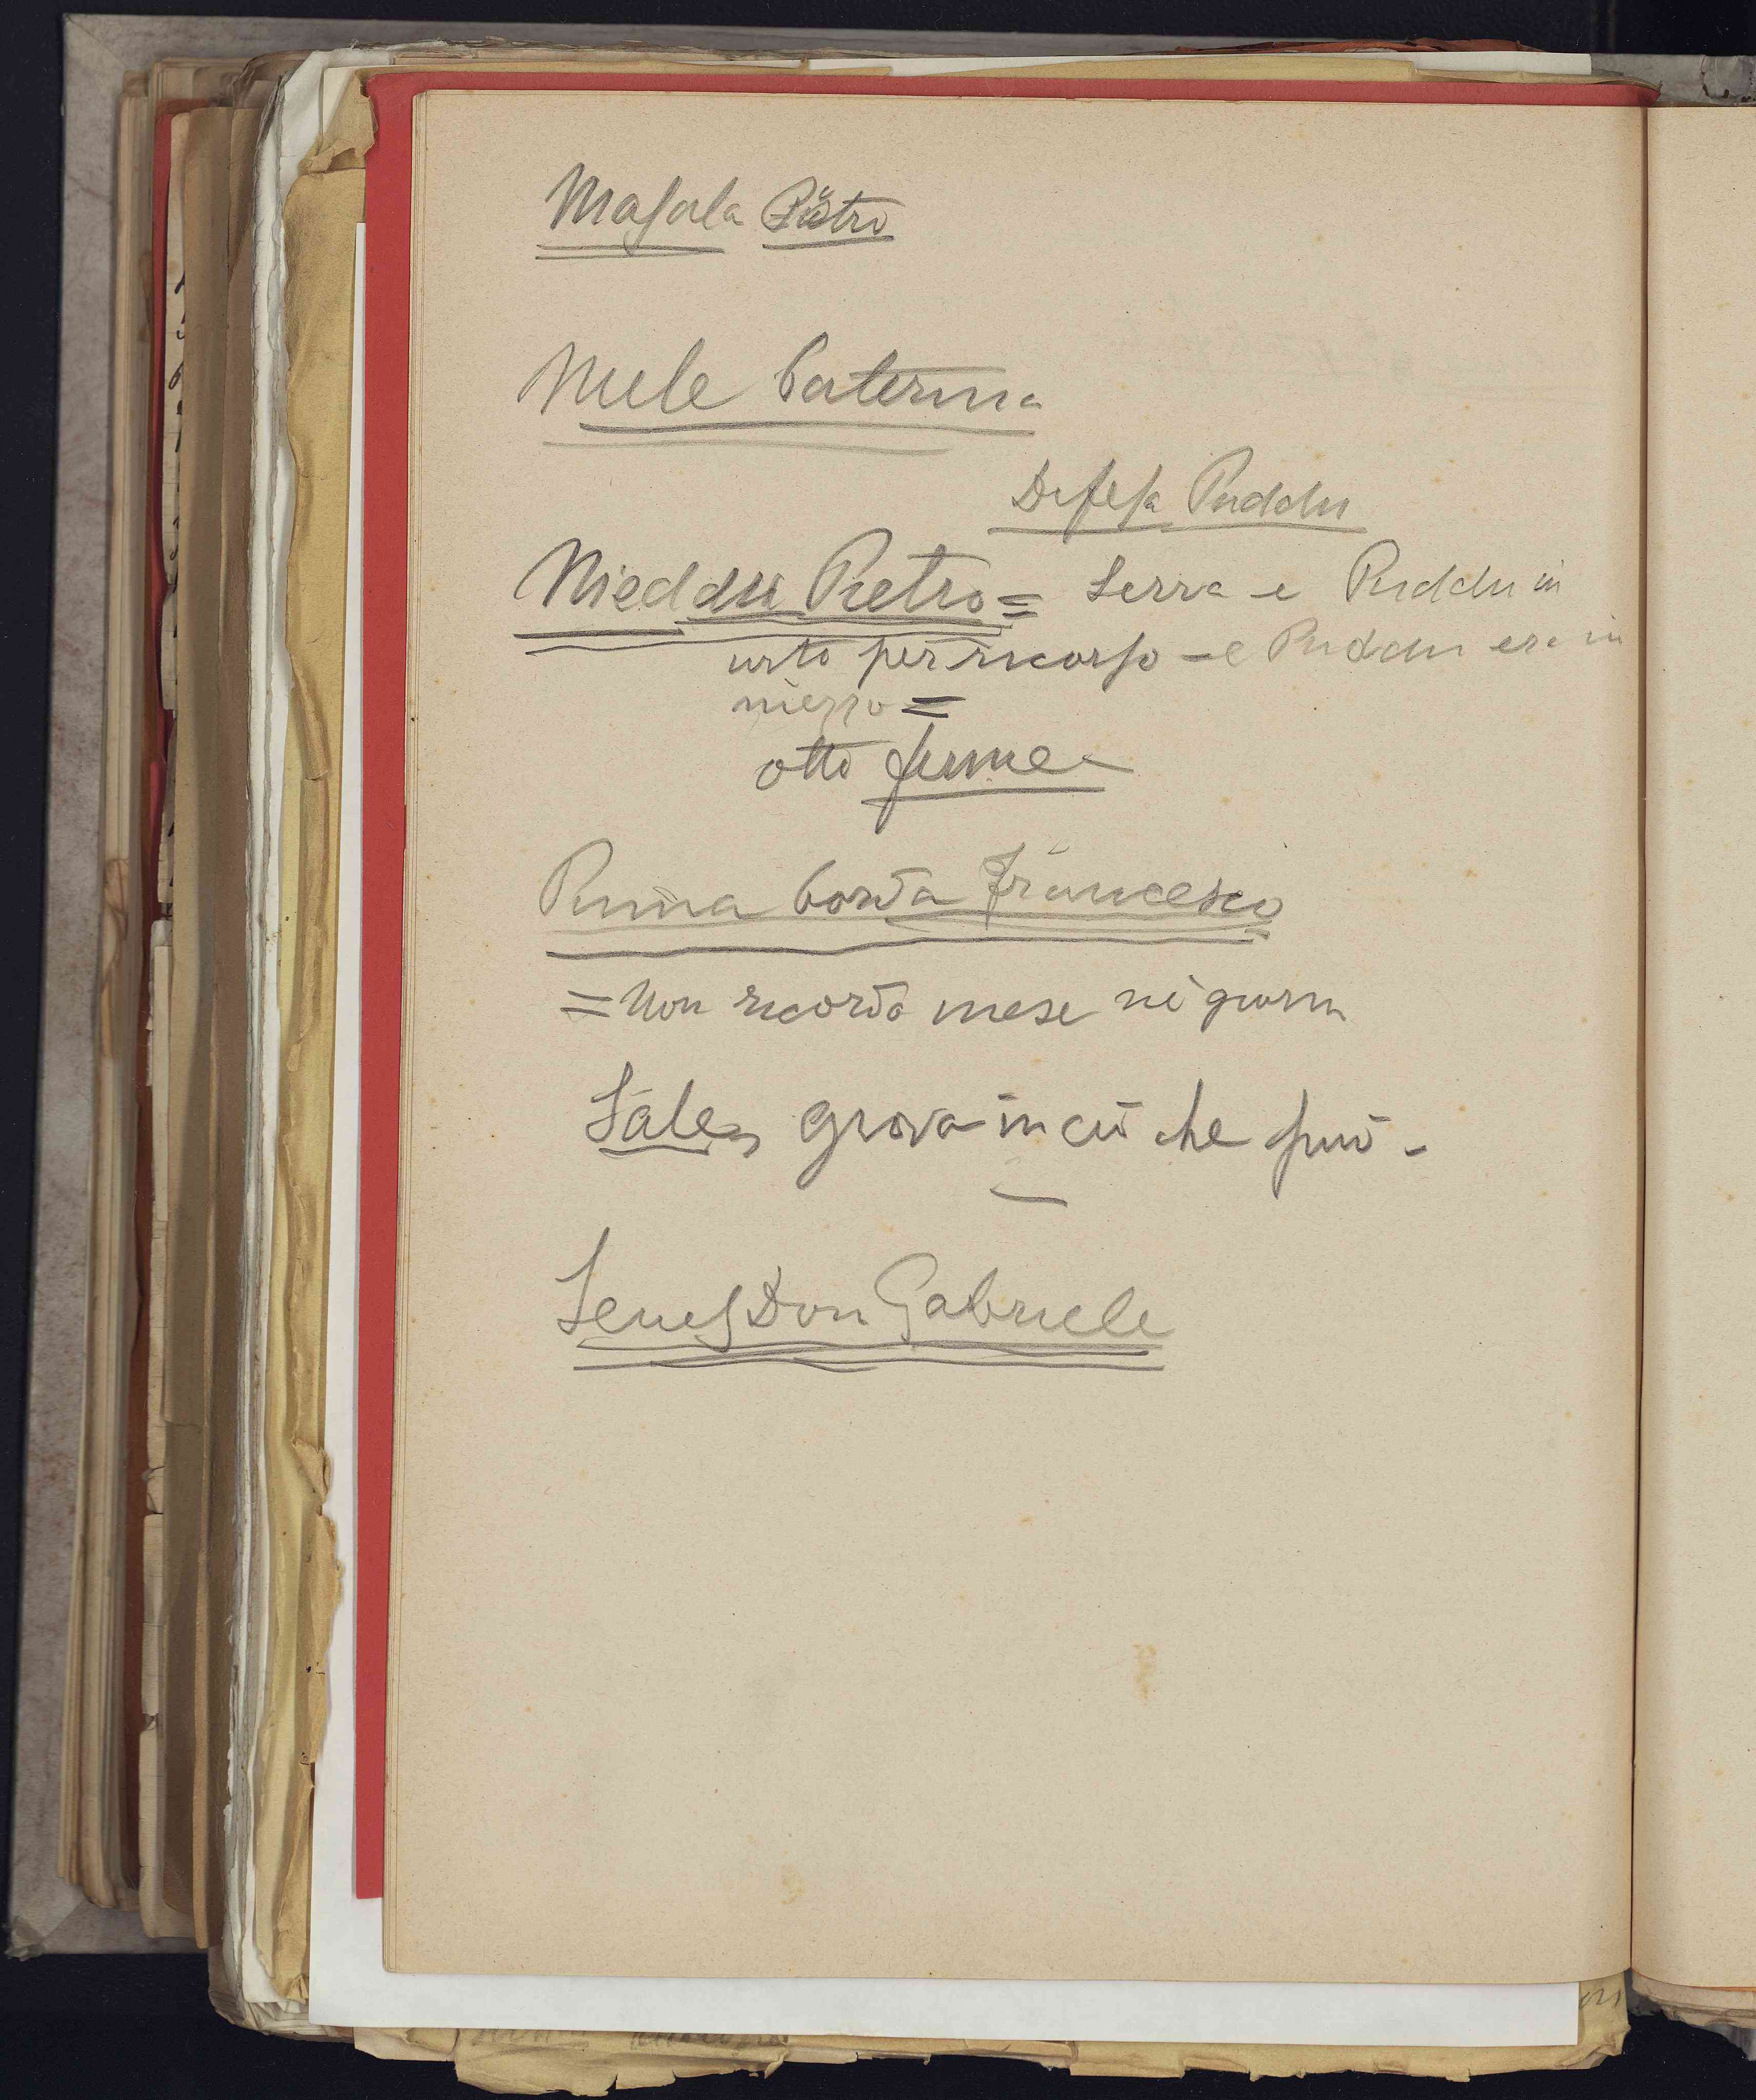 Masala Pietro
Mele Caterina
Difesa Puddu
Nieddu Pietro = Serra e Puddu in
urto per ricorso - e Puddu era in
mezzo =
otto fiume
Pinna Corda Francesco
= Non ricorda mese nè giorni
Sale, giova in ciò che può -
Senes Don Gabriele